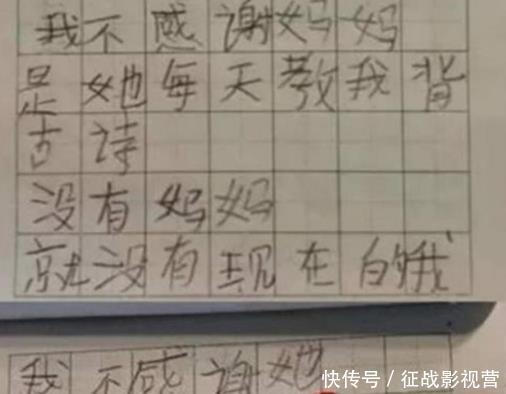 我不感谢妈妈
是她每天教我背
古诗
没有妈妈
就没有现在的我
我不感谢她
快传号 / 征战影视营